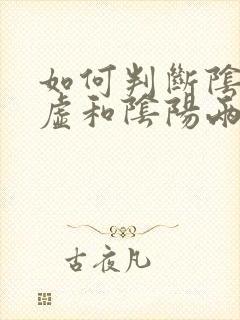 如何判斷陰
虛和陰陽兩
古夜凡